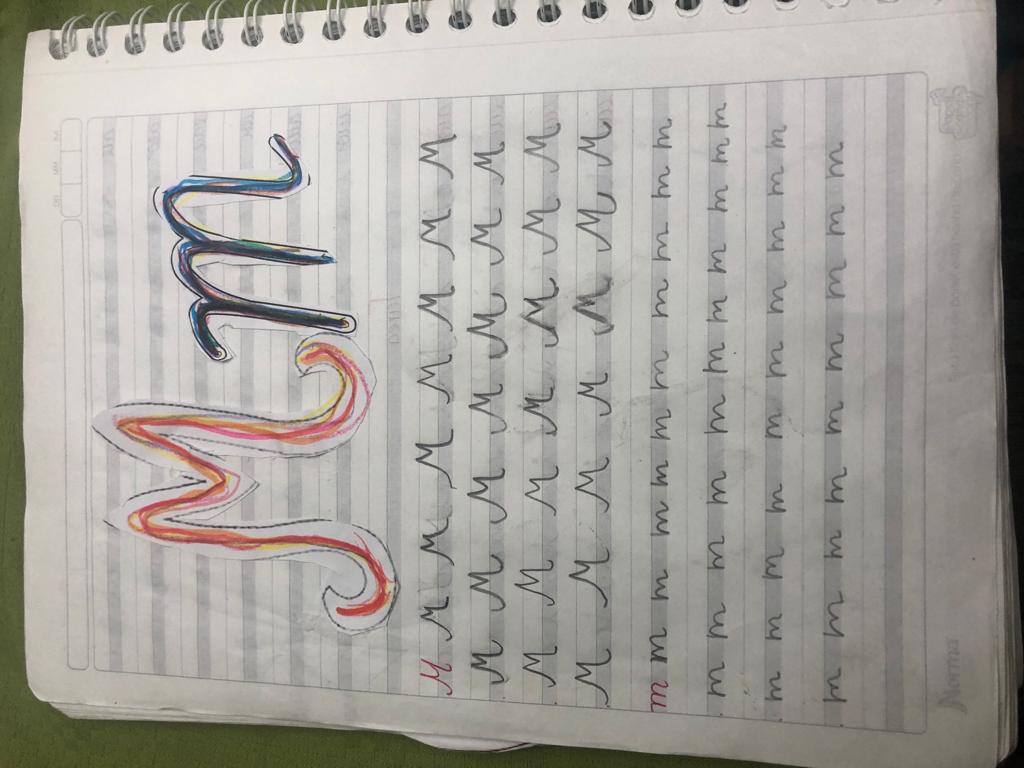 M m
M M M M M M M M
M M M M M M M
M M M M M M M
M M M M M M M
m m m m m m m m m m m
m m m m m m m m m m m
m m m m m m m m m m
m m m m m m m m m
Norma